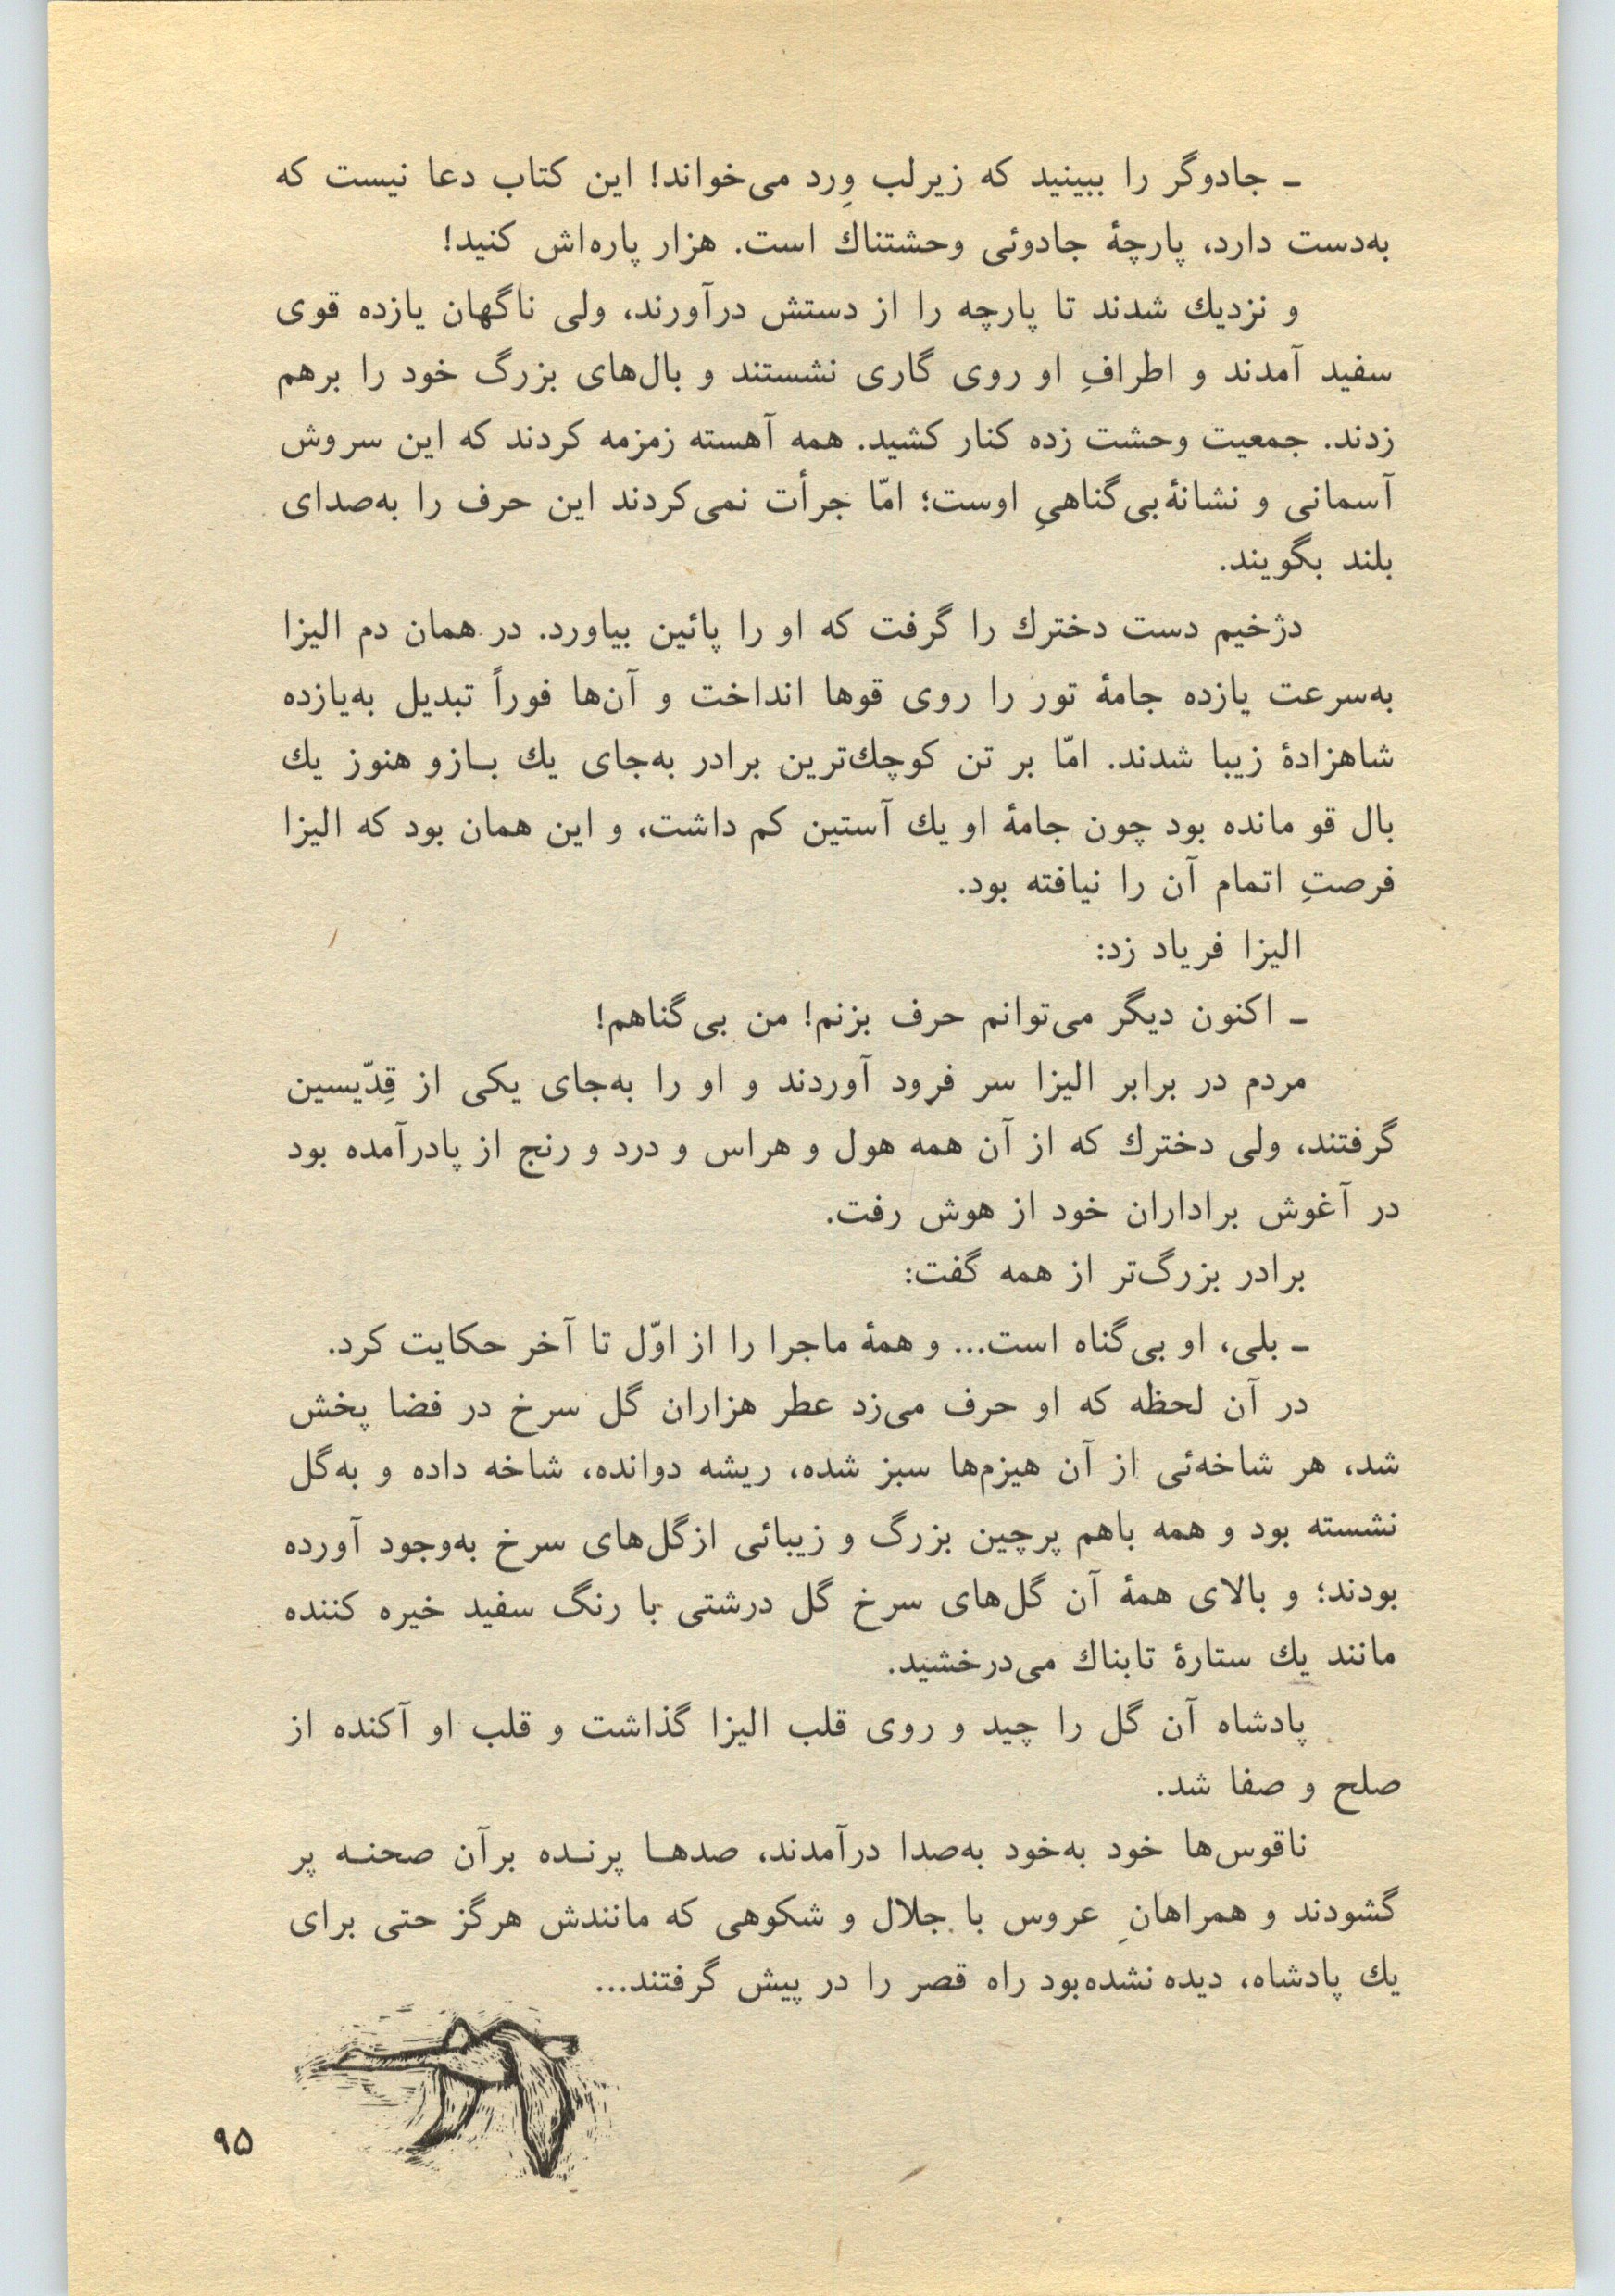 ـ جادوگر را ببینید که زیرلب وِرد می‌خواند! این کتاب دعا نیست که
به‌دست دارد، پارچهٔ جادوئی وحشتناك است. هزار پاره‌اش کنید!
و نزدیك شدند تا پارچه را از دستش درآورند، ولی ناگهان یازده قوی
سفید آمدند و اطرافِ او روی گاری نشستند و بال‌های بزرگ خود را برهم
زدند. جمعیت وحشت زده کنار کشید. همه آهسته زمزمه کردند که این سروش
آسمانی و نشانهٔ بی‌گناهیِ اوست؛ امّا جرأت نمی‌کردند این حرف را به‌صدای
بلند بگویند.
دژخیم دست دخترك را گرفت که او را پائین بیاورد. در همان دم الیزا
به‌سرعت یازده جامهٔ تور را روی قوها انداخت و آن‌ها فوراً تبدیل به‌یازده
شاهزادهٔ زیبا شدند. امّا بر تن کوچك‌ترین برادر به‌جای یك بـازو هنوز یك
بال قو مانده بود چون جامهٔ او یك آستین کم داشت، و این همان بود که الیزا
فرصتِ اتمام آن را نیافته بود.
الیزا فریاد زد:
ـ اکنون دیگر می‌توانم حرف بزنم! من بی‌گناهم!
مردم در برابر الیزا سر فرود آوردند و او را به‌جای یکی از قِدّیسین
گرفتند، ولی دخترك که از آن همه هول و هراس و درد و رنج از پادرآمده بود
در آغوش براداران خود از هوش رفت.
برادر بزرگ‌تر از همه گفت:
ـ بلی، او بی‌گناه است... و همهٔ ماجرا را از اوّل تا آخر حکایت کرد.
در آن لحظه که او حرف می‌زد عطر هزاران گل سرخ در فضا پخش
شد، هر شاخه‌ئی از آن هیزم‌ها سبز شده، ریشه دوانده، شاخه داده و به‌گل
نشسته بود و همه باهم پرچین بزرگ و زیبائی ازگل‌های سرخ به‌وجود آورده
بودند؛ و بالای همهٔ آن گل‌های سرخ گل درشتی با رنگ سفید خیره کننده
مانند یك ستارهٔ تابناك می‌درخشید.
پادشاه آن گل را چید و روی قلب الیزا گذاشت و قلب او آکنده از
صلح و صفا شد.
ناقوس‌ها خود به‌خود به‌صدا درآمدند، صدهـا پرنـده برآن صحنـه پر
گشودند و همراهانِ عروس با جلال و شکوهی که مانندش هرگز حتی برای
یك پادشاه، دیده نشده‌بود راه قصر را در پیش گرفتند...
۹۵